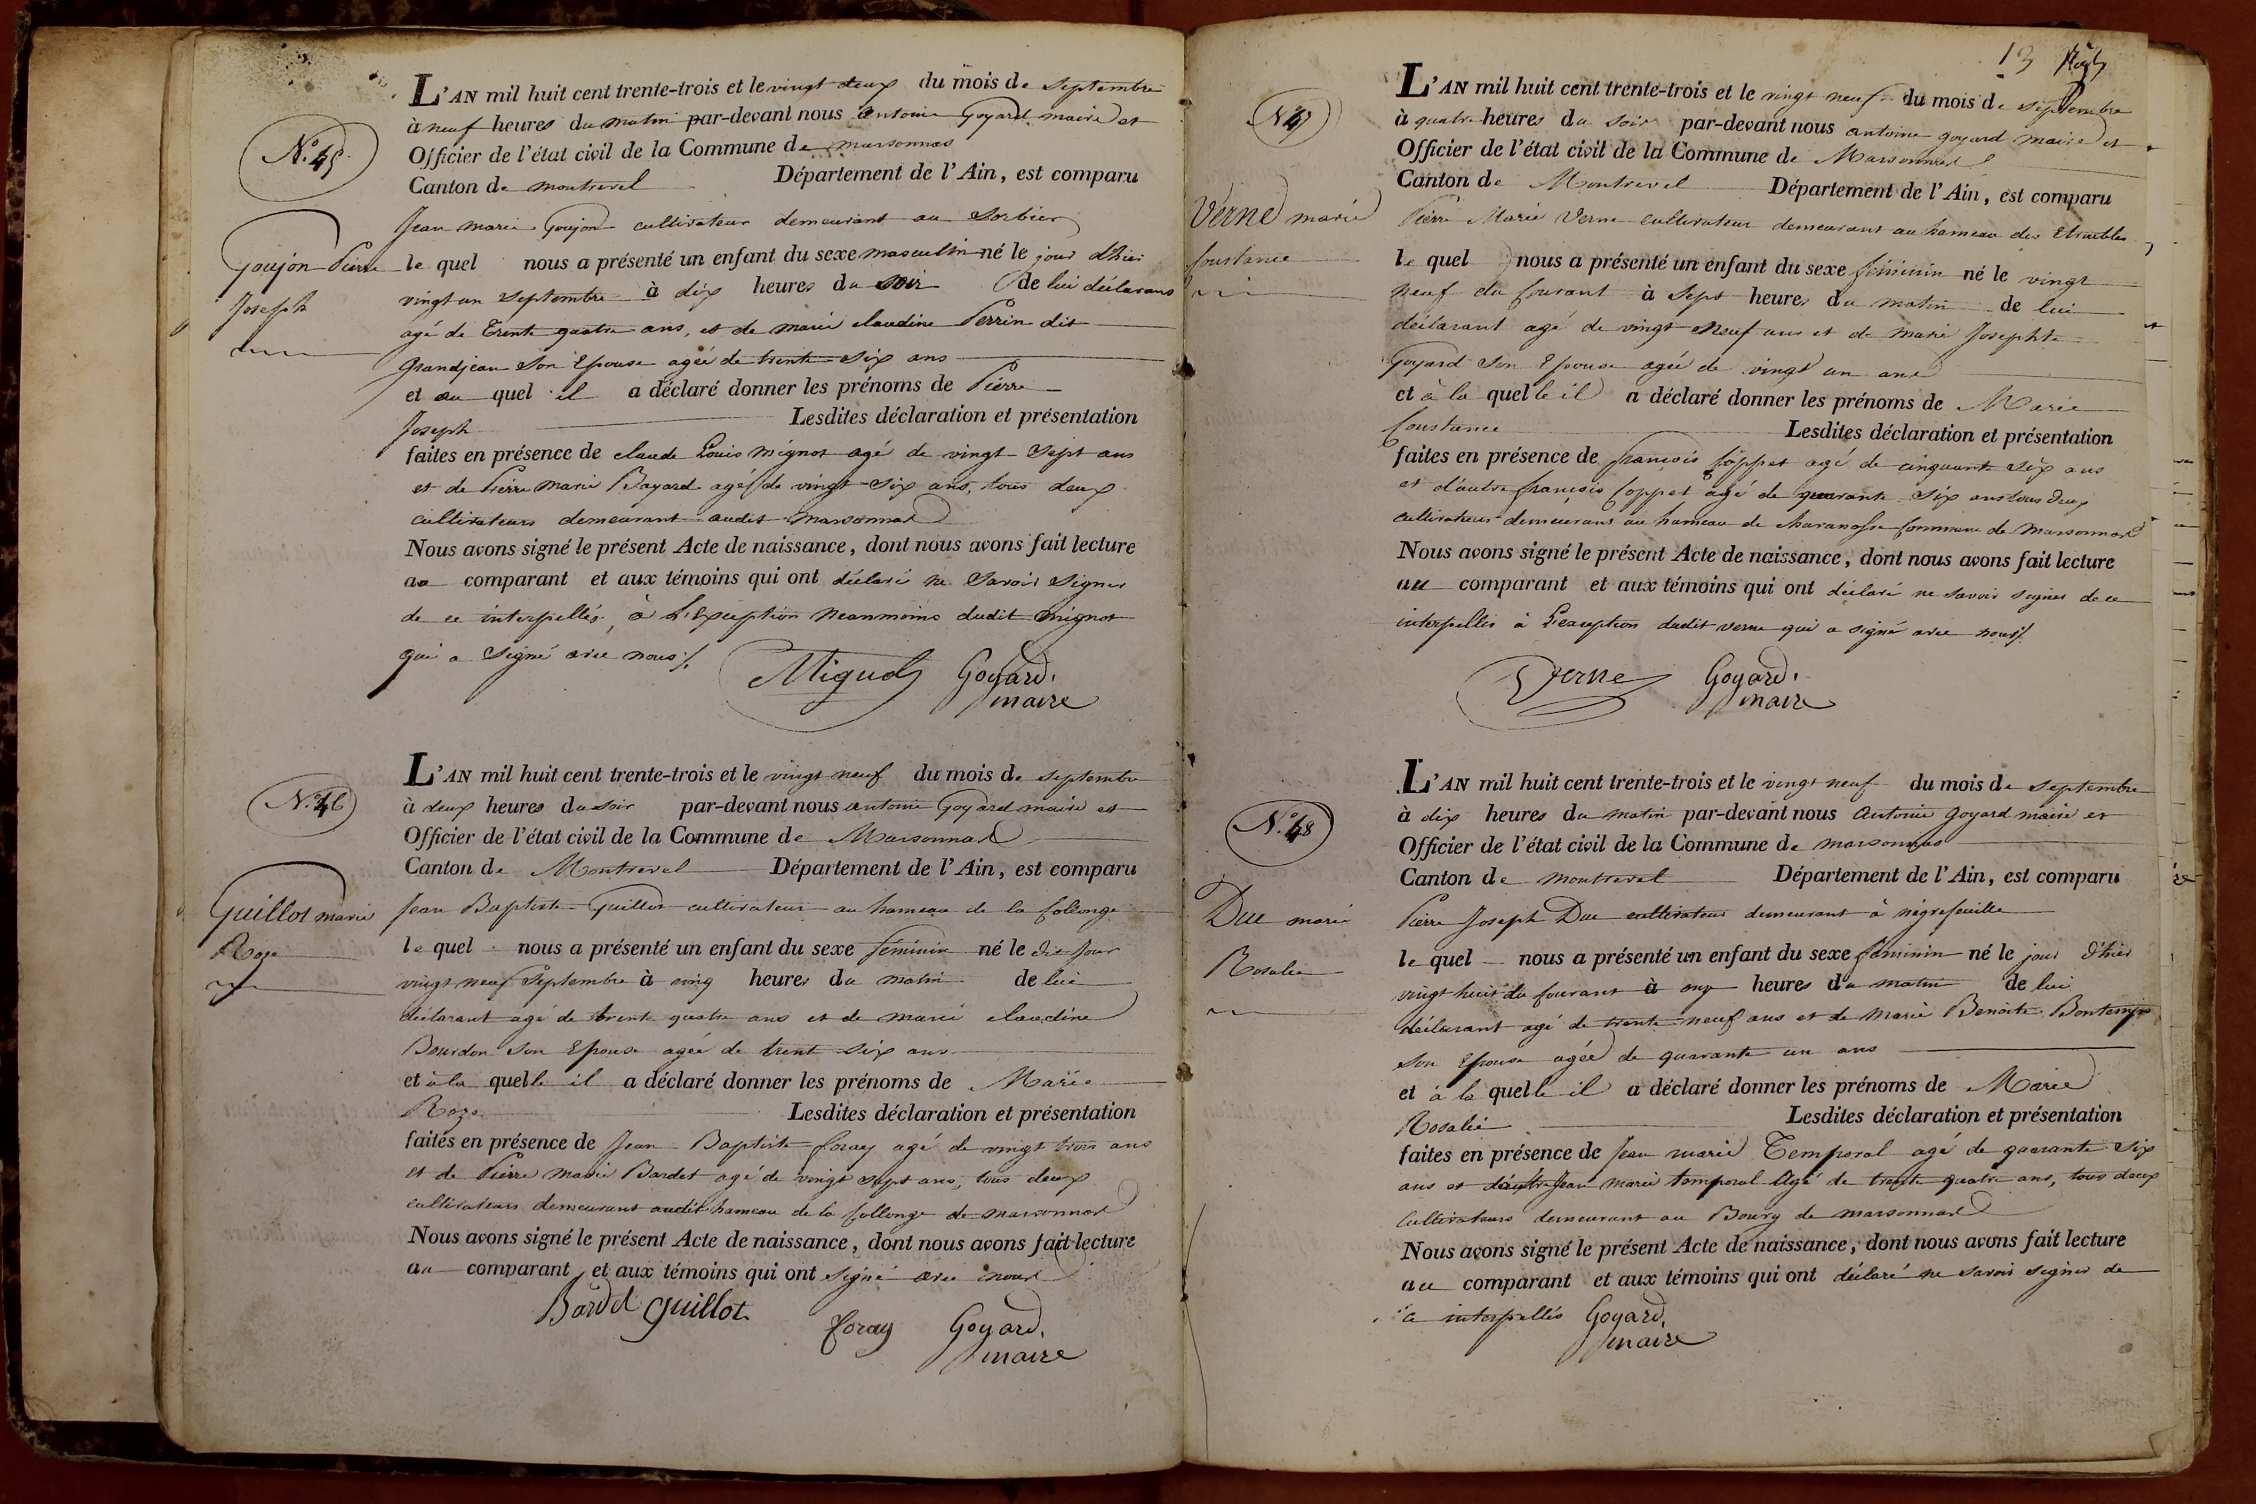 N.º 45
Goujon Pierre
Joseph
L'AN mil huit cent trente-trois et le vingt deux du mois de septembre
à neuf heures du matin par-devant nous antoine Goyard maire et
Officier de l'état civil de la Commune de marsonnas
Canton de montrevel Département de l'Ain, est comparu
Jean marie Goujon cultivateur demeurant au Sorbier
lequel nous a présenté un enfant du sexe masculin né le jour d'hier
vingt un septembre à dix heures du soir de lui déclarant
agé de trente quatre ans, et de marie claudine Perrin dit
grandjean son Epouse agée de trente-six ans
et au quel il a déclaré donner les prénoms de Pierre
Joseph Lesdites déclaration et présentation
faites en présence de claude Louis Mignot agé de vingt-sept ans
et de Pierre Marie Bayard agé de vingt-six ans, tous deux
cultivateurs demeurant audit marsonnas
Nous avons signé le présent Acte de naissance, dont nous avons fait lecture
au comparant et aux témoins qui ont déclaré ne savoir signer
de ce interpellés, à l'Exception neanmoins dudit mignot
qui a signé avec nous
Mignot Goyard,
maire
N.º 46
Guillot marie
Roze
L'AN mil huit cent trente-trois et le vingt neuf du mois de septembre
à deux heures du soir par-devant nous antoine Goyard maire et
Officier de l'état civil de la Commune de Marsonnas
Canton de Montrevel Département de l'Ain, est comparu
Jean Baptiste Guillot cultivateur au hameau de la Collonge
lequel nous a présenté un enfant du sexe féminin né le dit jour
vingt neuf Septembre à cinq heures du matin de lui
déclarant agé de trente quatre ans et de marie claudine
Bourdon son Epouse agée de trent six ans
et à la quelle il a déclaré donner les prénoms de Marie
Roze Lesdites déclaration et présentation
faites en présence de Jean Baptiste foray agé de vingt trois ans
et de Pierre Marie Bardet agé de vingt sept ans, tous deux
cultivateurs demeurant audit hameau de la Collonge de marsonnas
Nous avons signé le présent Acte de naissance, dont nous avons fait lecture
au comparant et aux témoins qui ont signé avec nous
Bardet Guillot
foray Goyard,
maire
13
N.º 47
Verne marie
Constance
L'AN mil huit cent trente-trois et le vingt neuf du mois de septembre
à quatre heures du soir par-devant nous antoine goyard maire et
Officier de l'état civil de la Commune de Marsonnas
Canton de Montrevel Département de l'Ain, est comparu
Pierre Marie Verne cultivateur demeurant au hameau des Etroubles
lequel nous a présenté un enfant du sexe féminin né le vingt
neuf du Courant à sept heures du matin de lui
déclarant agé de vingt neuf ans et de marie Josephte
Goyard son Epouse agée de vingt un ans
et à la quelle il a déclaré donner les prénoms de Marie
Constance Lesdites déclaration et présentation
faites en présence de françois Coppet agé de cinquante six ans
et d'autre françois Coppet agé de quarante six ans tous deux
cultivateurs demeurant au hameau de Commune de Marsonnas
Nous avons signé le présent Acte de naissance, dont nous avons fait lecture
au comparant et aux témoins qui ont déclaré ne savoir signer de ce
interpellés à l'exception dudit verne qui a signé avec nous
Verne Goyard,
maire
N.º 48
Duc marie
Rosalie
L'AN mil huit cent trente-trois et le vingt neuf du mois de septembre
à dix heures du matin par-devant nous Antoine goyard maire et
Officier de l'état civil de la Commune de marsonnas
Canton de montrevel Département de l'Ain, est comparu
Pierre Joseph Duc cultivateur demeurant à négrefeuille
lequel nous a présenté un enfant du sexe féminin né le jour d'hier
vingt huit du Courant à onze heures du matin de lui
déclarant agé de trente-neuf ans et de Marie Benoite Bontemps
son Epouse agée de quarante un ans
et à la quelle il a déclaré donner les prénoms de Marie
Rosalie Lesdites déclaration et présentation
faites en présence de Jean marie Temporal agé de quarante six
ans et d'autre Jean Marie temporal Agé de trente quatre ans, tous deux
Cultivateurs demeurant au Bourg de marsonnas
Nous avons signé le présent Acte de naissance, dont nous avons fait lecture
au comparant et aux témoins qui ont déclaré ne savoir signer de
ce interpellés Goyard,
maire